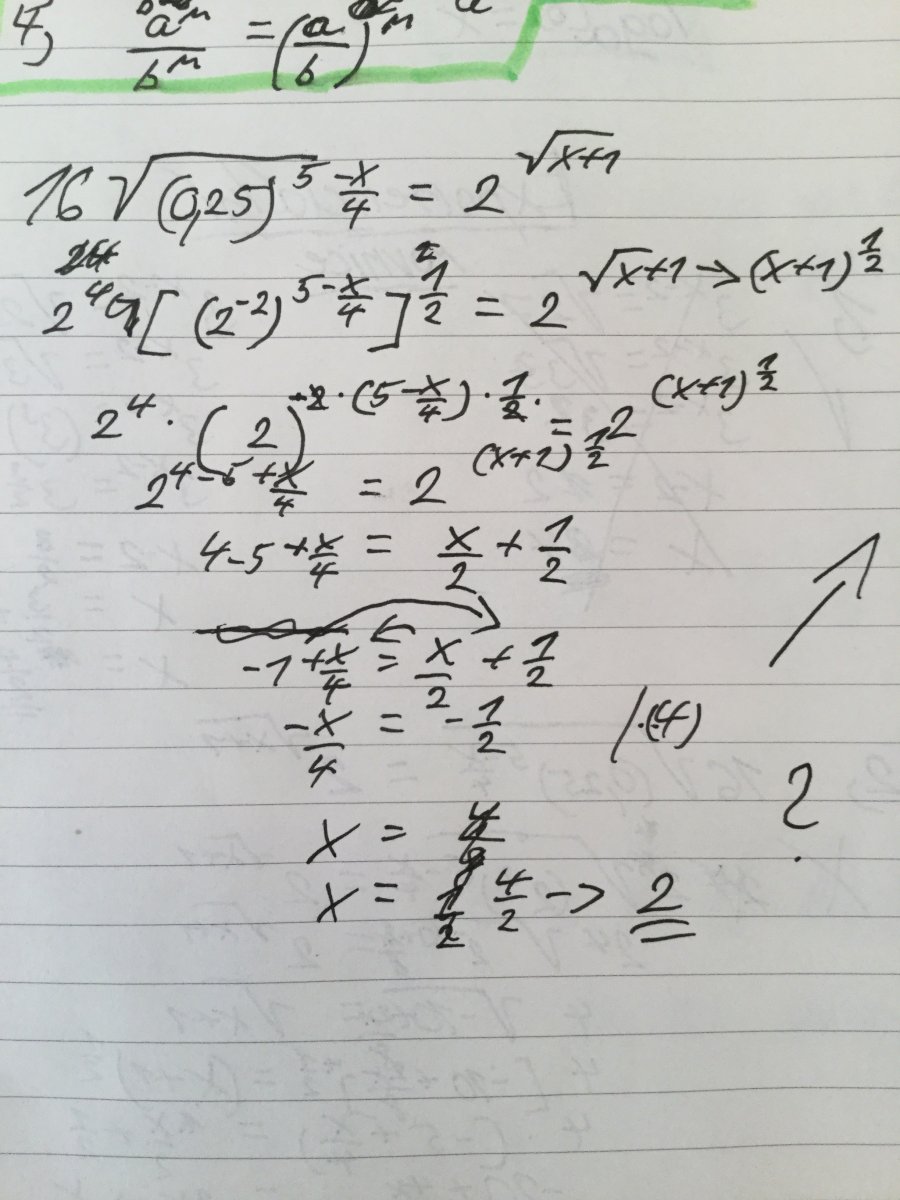 4) aⁿ/bⁿ = (a/b)ⁿ
16 √(0,25)^(5-x/4) = 2^(√x+1)
2^4 [(2^-2)^(5-x/4)]^(1/2) = 2^(√x+1) → (x+1)^(1/2)
2^4 · (2)^(-2·(5-x/4)·1/2) · = 2^((x+1)^(1/2))
2^(4-5+x/4) = 2^((x+1)^(1/2))
4-5+x/4 = x/2 + 1/2
-1+x/4 = x/2 + 1/2
-x/4 = -1/2 /·(4)
x = 4/
x = 1/2 4/2 -> 2
?